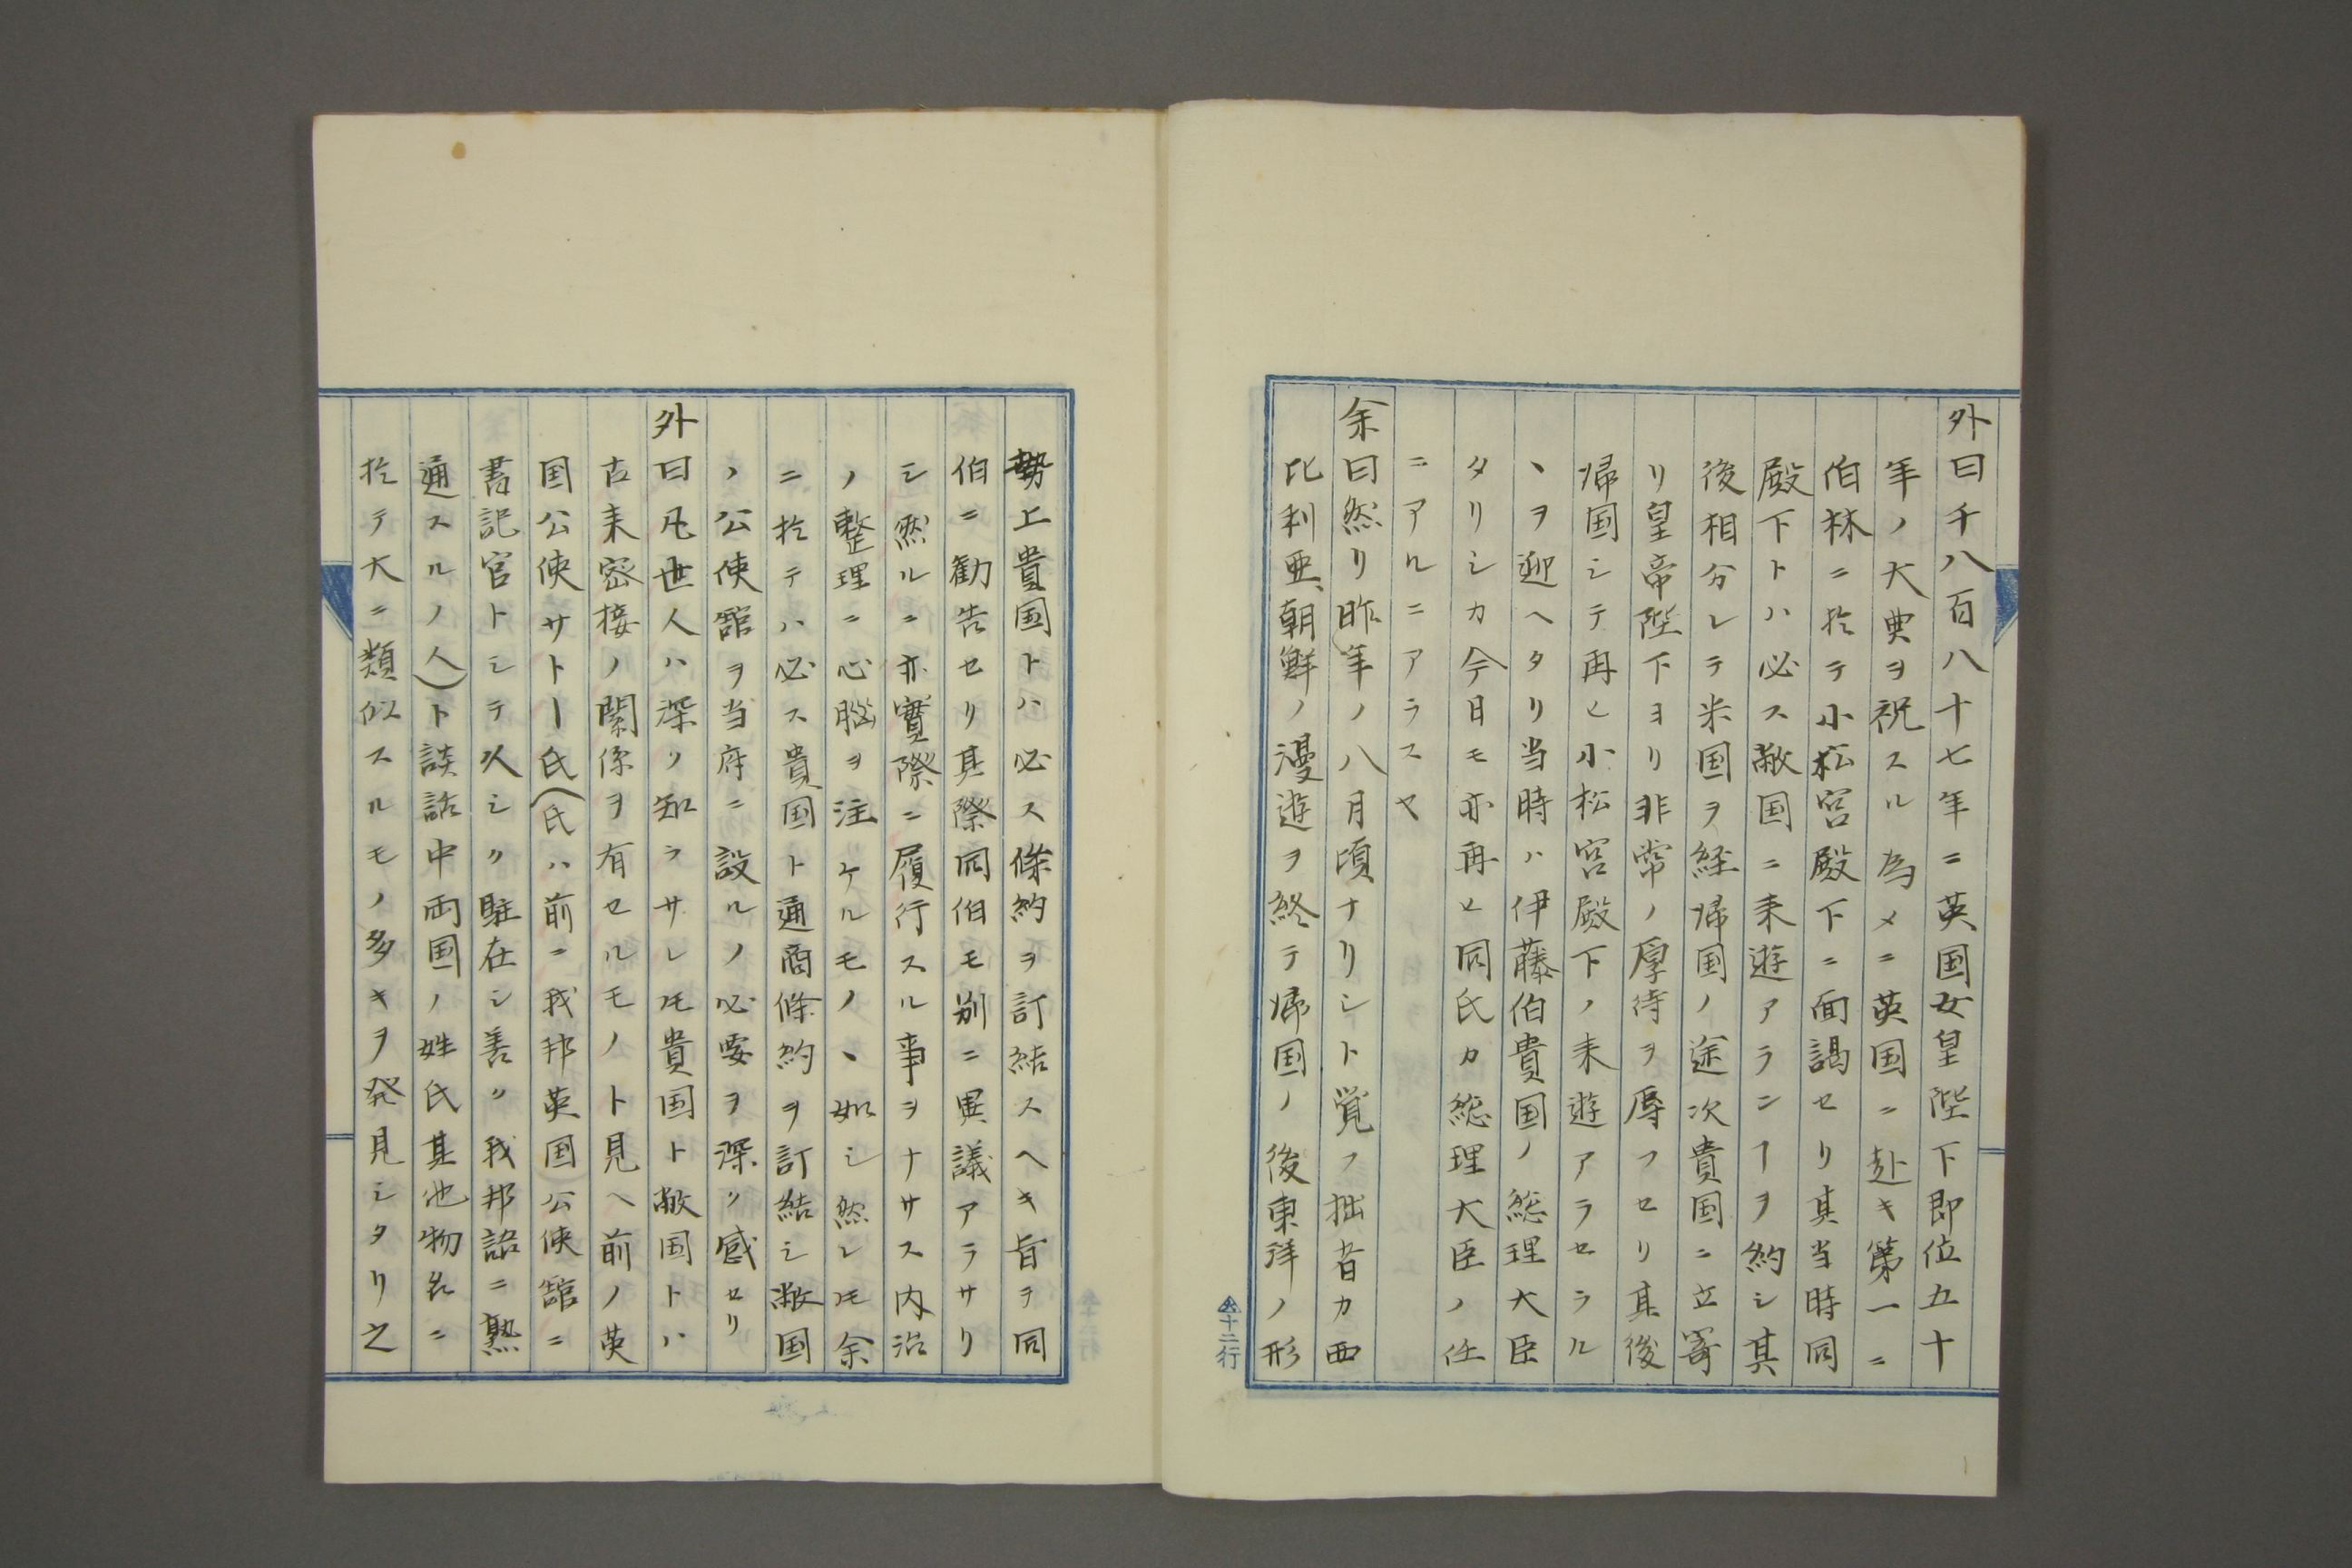 外曰千八百八十七年ニ英国女皇陛下即位五十
年ノ大典ヲ祝スル為メニ英国ニ赴キ第一ニ
伯林ニ於テ小松宮殿下ニ面謁セリ其当時同
殿下トハ必ス敝国ニ来遊アランヿヲ約シ其
後相分レテ米国ヲ経帰国ノ途次貴国ニ立寄
リ皇帝陛下ヨリ非常ノ厚待ヲ辱フセリ其後
帰国シテ再ヒ小松宮殿下ノ来遊アラセラル
ヽヲ迎ヘタリ当時ハ伊藤伯貴国ノ総理大臣
タリシカ今日モ亦再ヒ同氏カ総理大臣ノ任
ニアルニアラスヤ
余曰然リ昨年ノ八月頃ナリシト覚フ拙者カ西
比利亜、朝鮮ノ漫遊ヲ終テ帰国ノ後東洋ノ形
六十二行
勢上貴国トハ必ス條約ヲ訂結スヘキ旨ヲ同
伯ニ勧告セリ其際同伯モ別ニ異議アラサリ
シ然ルニ亦實際ニ履行スル事ヲナサス内治
ノ整理ニ心腦ヲ注ケルモノヽ如シ然レ𪜈余
ニ於テハ必ス貴国ト通商條約ヲ訂結シ敝国
ノ公使舘ヲ当府ニ設ルノ必要ヲ深ク感セリ
外曰凡世人ハ深ク知ラサレ𪜈貴国ト敝国トハ
古来密接ノ関係ヲ有セルモノト見ヘ前ノ英
国公使サトー氏(氏ハ前ニ我邦英国公使舘ニ
書記官トシテ久シク駐在シ善ク我邦語ニ熟
通スルノ人)ト談話中両国ノ姓氏其他物名ニ
於テ大ニ類似スルモノ多キヲ発見シタリ之